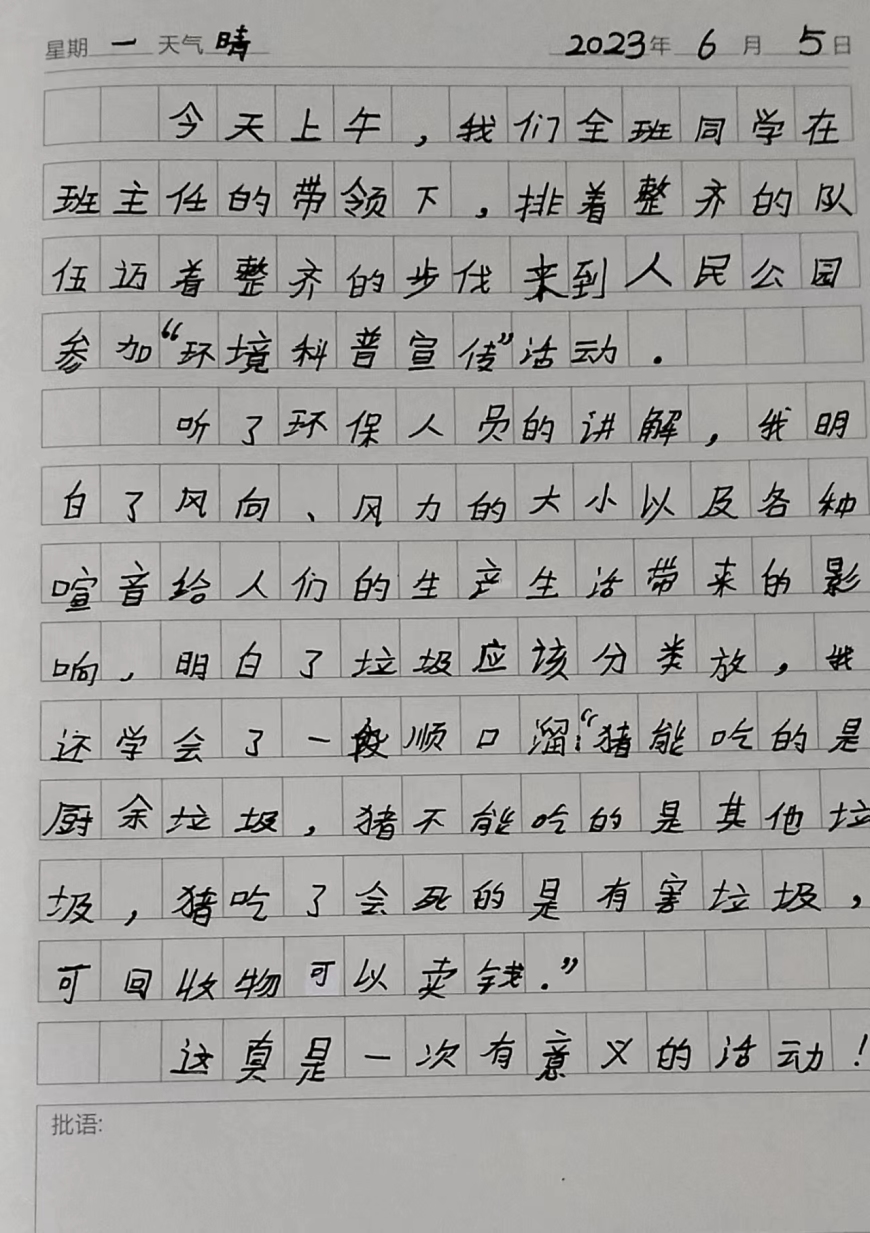 星期 一 天气 晴 2023年 6 月 5 日
今天上午，我们全班同学在
班主任的带领下，排着整齐的队
伍迈着整齐的步伐来到人民公园
参加“环境科普宣传”活动．
听了环保人员的讲解，我明
白了风向、风力的大小以及各种
喧音给人们的生产生活带来的影
响，明白了垃圾应该分类放，我
还学会了一段顺口溜：“猪能吃的是
厨余垃圾，猪不能吃的是其他垃
圾，猪吃了会死的是有害垃圾，
可回收物可以卖钱．”
这真是一次有意义的活动！
批语: